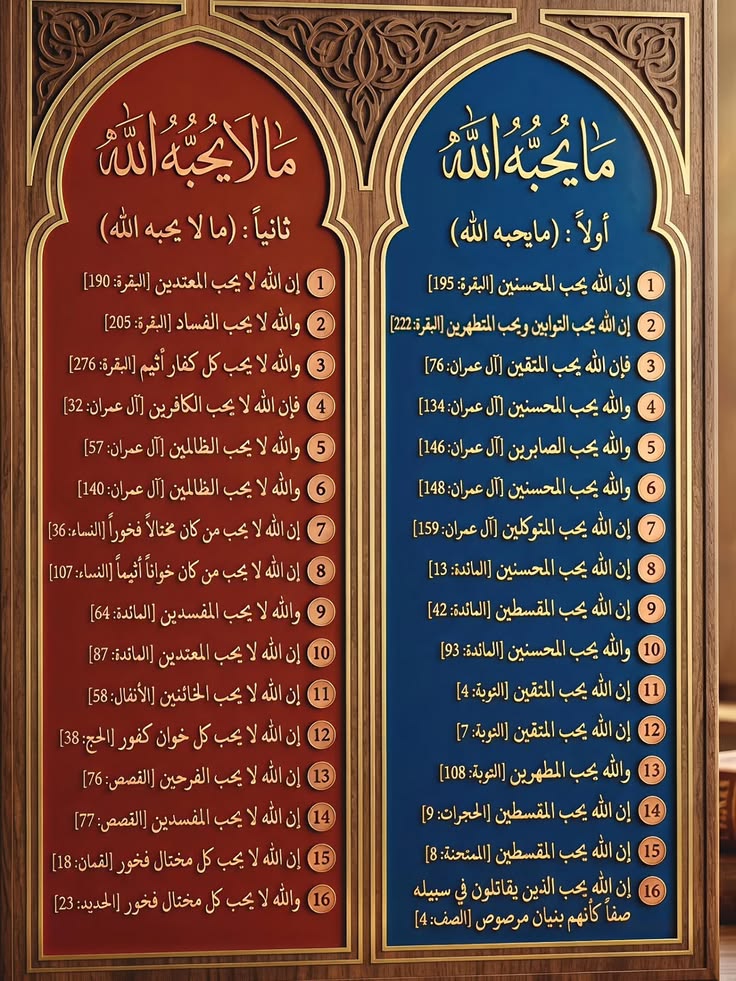 ما يحبه الله
أولاً : (مايحبه الله)
1 إن الله يحب المحسنين [البقرة: 195]
2 إن الله يحب التوابين ويحب المتطهرين [البقرة: 222]
3 فإن الله يحب المتقين [آل عمران: 76]
4 والله يحب المحسنين [آل عمران: 134]
5 والله يحب الصابرين [آل عمران: 146]
6 والله يحب المحسنين [آل عمران: 148]
7 إن الله يحب المتوكلين [آل عمران: 159]
8 إن الله يحب المحسنين [المائدة: 13]
9 إن الله يحب المقسطين [المائدة: 42]
10 والله يحب المحسنين [المائدة: 93]
11 إن الله يحب المتقين [التوبة: 4]
12 إن الله يحب المتقين [التوبة: 7]
13 والله يحب المطهرين [التوبة: 108]
14 إن الله يحب المقسطين [الحجرات: 9]
15 إن الله يحب المقسطين [الممتحنة: 8]
16 إن الله يحب الذين يقاتلون في سبيله
صفاً كأنهم بنيان مرصوص [الصف: 4]
ما لا يحبه الله
ثانياً : (ما لا يحبه الله)
1 إن الله لا يحب المعتدين [البقرة: 190]
2 والله لا يحب الفساد [البقرة: 205]
3 والله لا يحب كل كفار أثيم [البقرة: 276]
4 فإن الله لا يحب الكافرين [آل عمران: 32]
5 والله لا يحب الظالمين [آل عمران: 57]
6 والله لا يحب الظالمين [آل عمران: 140]
7 إن الله لا يحب من كان مختالاً فخوراً [النساء: 36]
8 إن الله لا يحب من كان خواناً أثيماً [النساء: 107]
9 والله لا يحب المفسدين [المائدة: 64]
10 إن الله لا يحب المعتدين [المائدة: 87]
11 إن الله لا يحب الخائنين [الأنفال: 58]
12 إن الله لا يحب كل خوان كفور [الحج: 38]
13 إن الله لا يحب الفرحين [القصص: 76]
14 إن الله لا يحب المفسدين [القصص: 77]
15 إن الله لا يحب كل مختال فخور [لقمان: 18]
16 والله لا يحب كل مختال فخور [الحديد: 23]